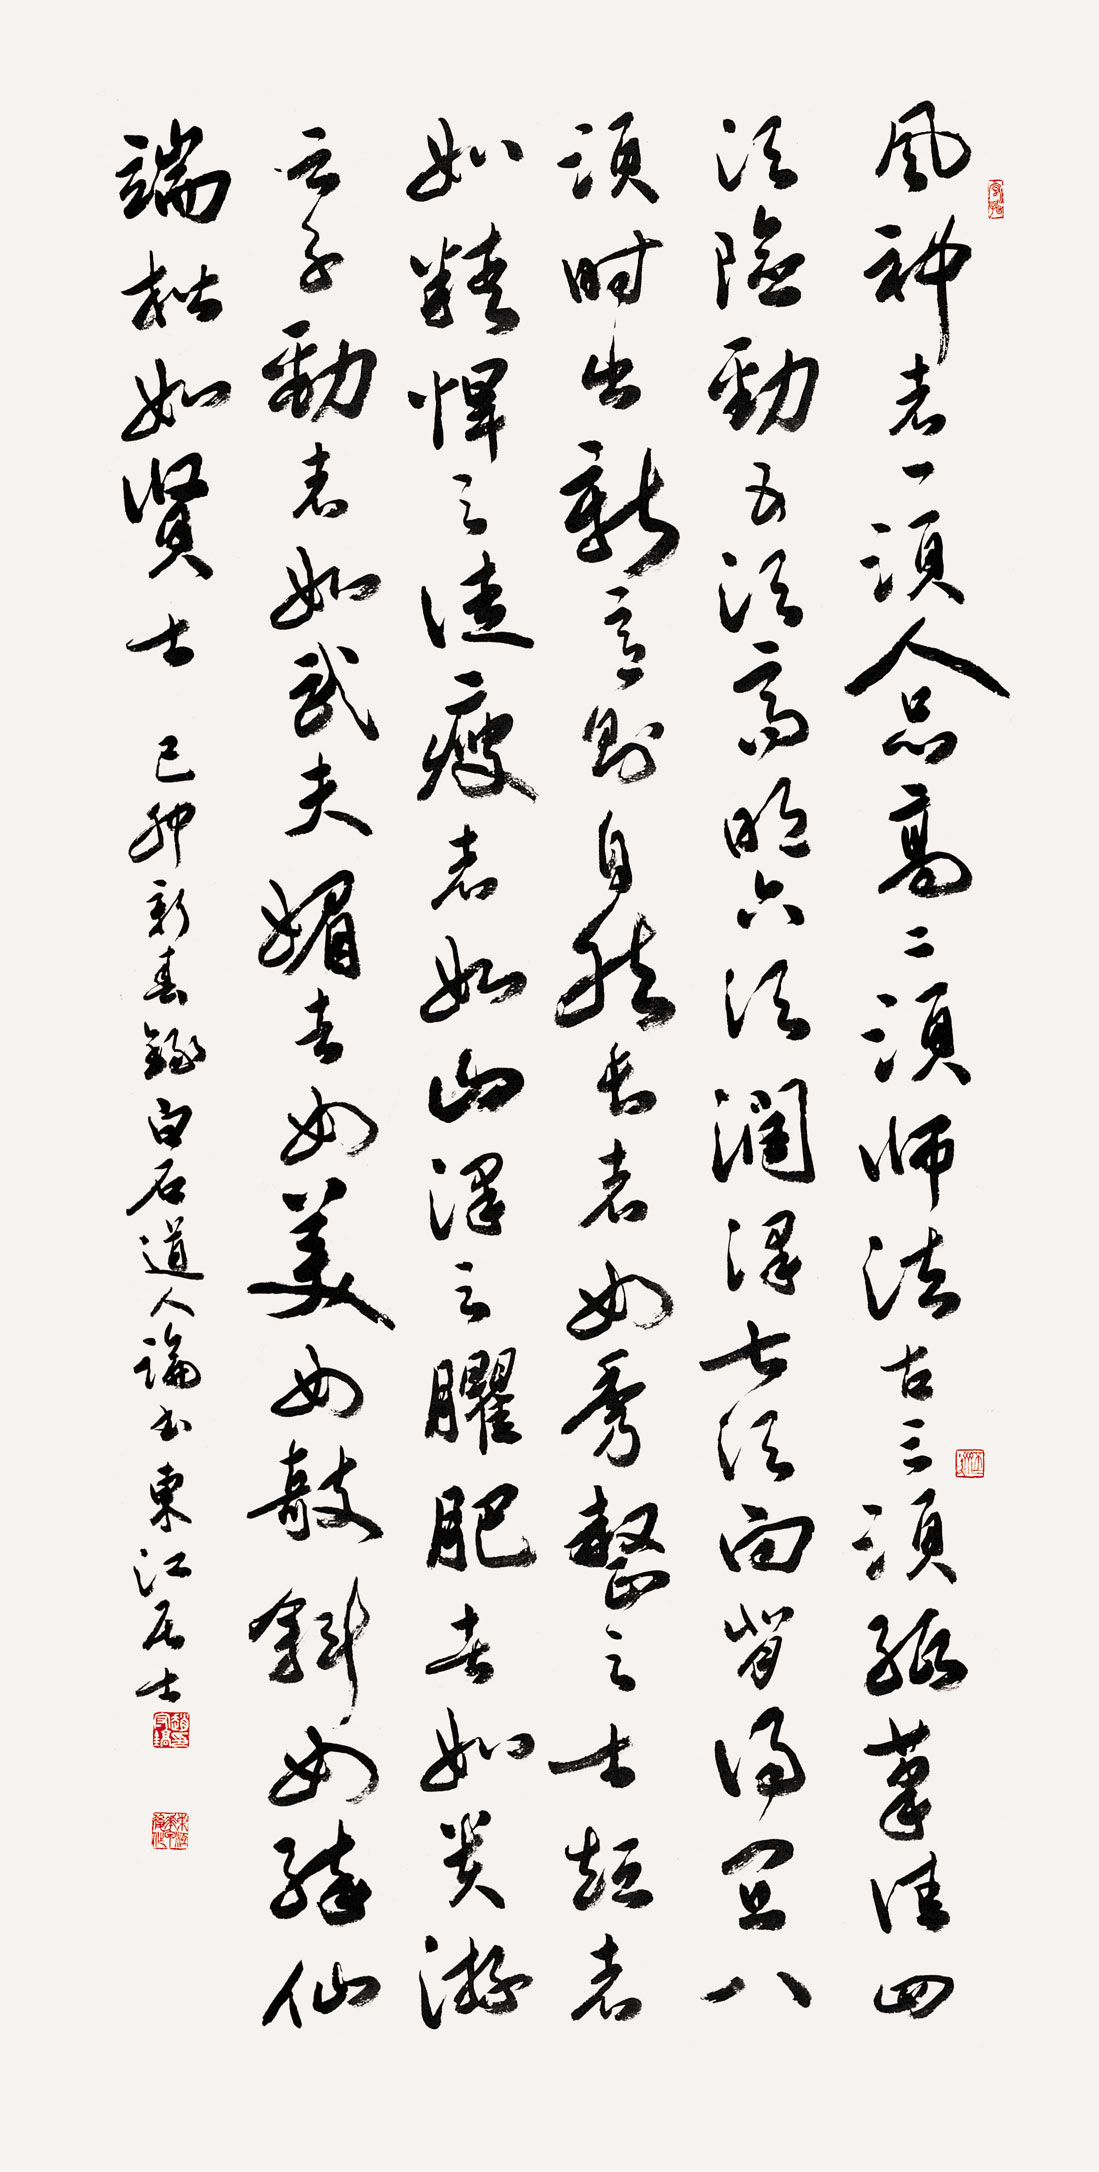 風神者一須人品高二須师法古三須紙筆佳四
須險勁五須高明六須潤澤七須向背得宜八
須時出新意則自然長者如秀整之士短者
如精悍之徒瘦者如山澤之臞肥者如貴游
之子勁者如武夫媚者如美女欹斜如醉仙
端楷如賢士
己卯新春錄白石道人論書東江居士